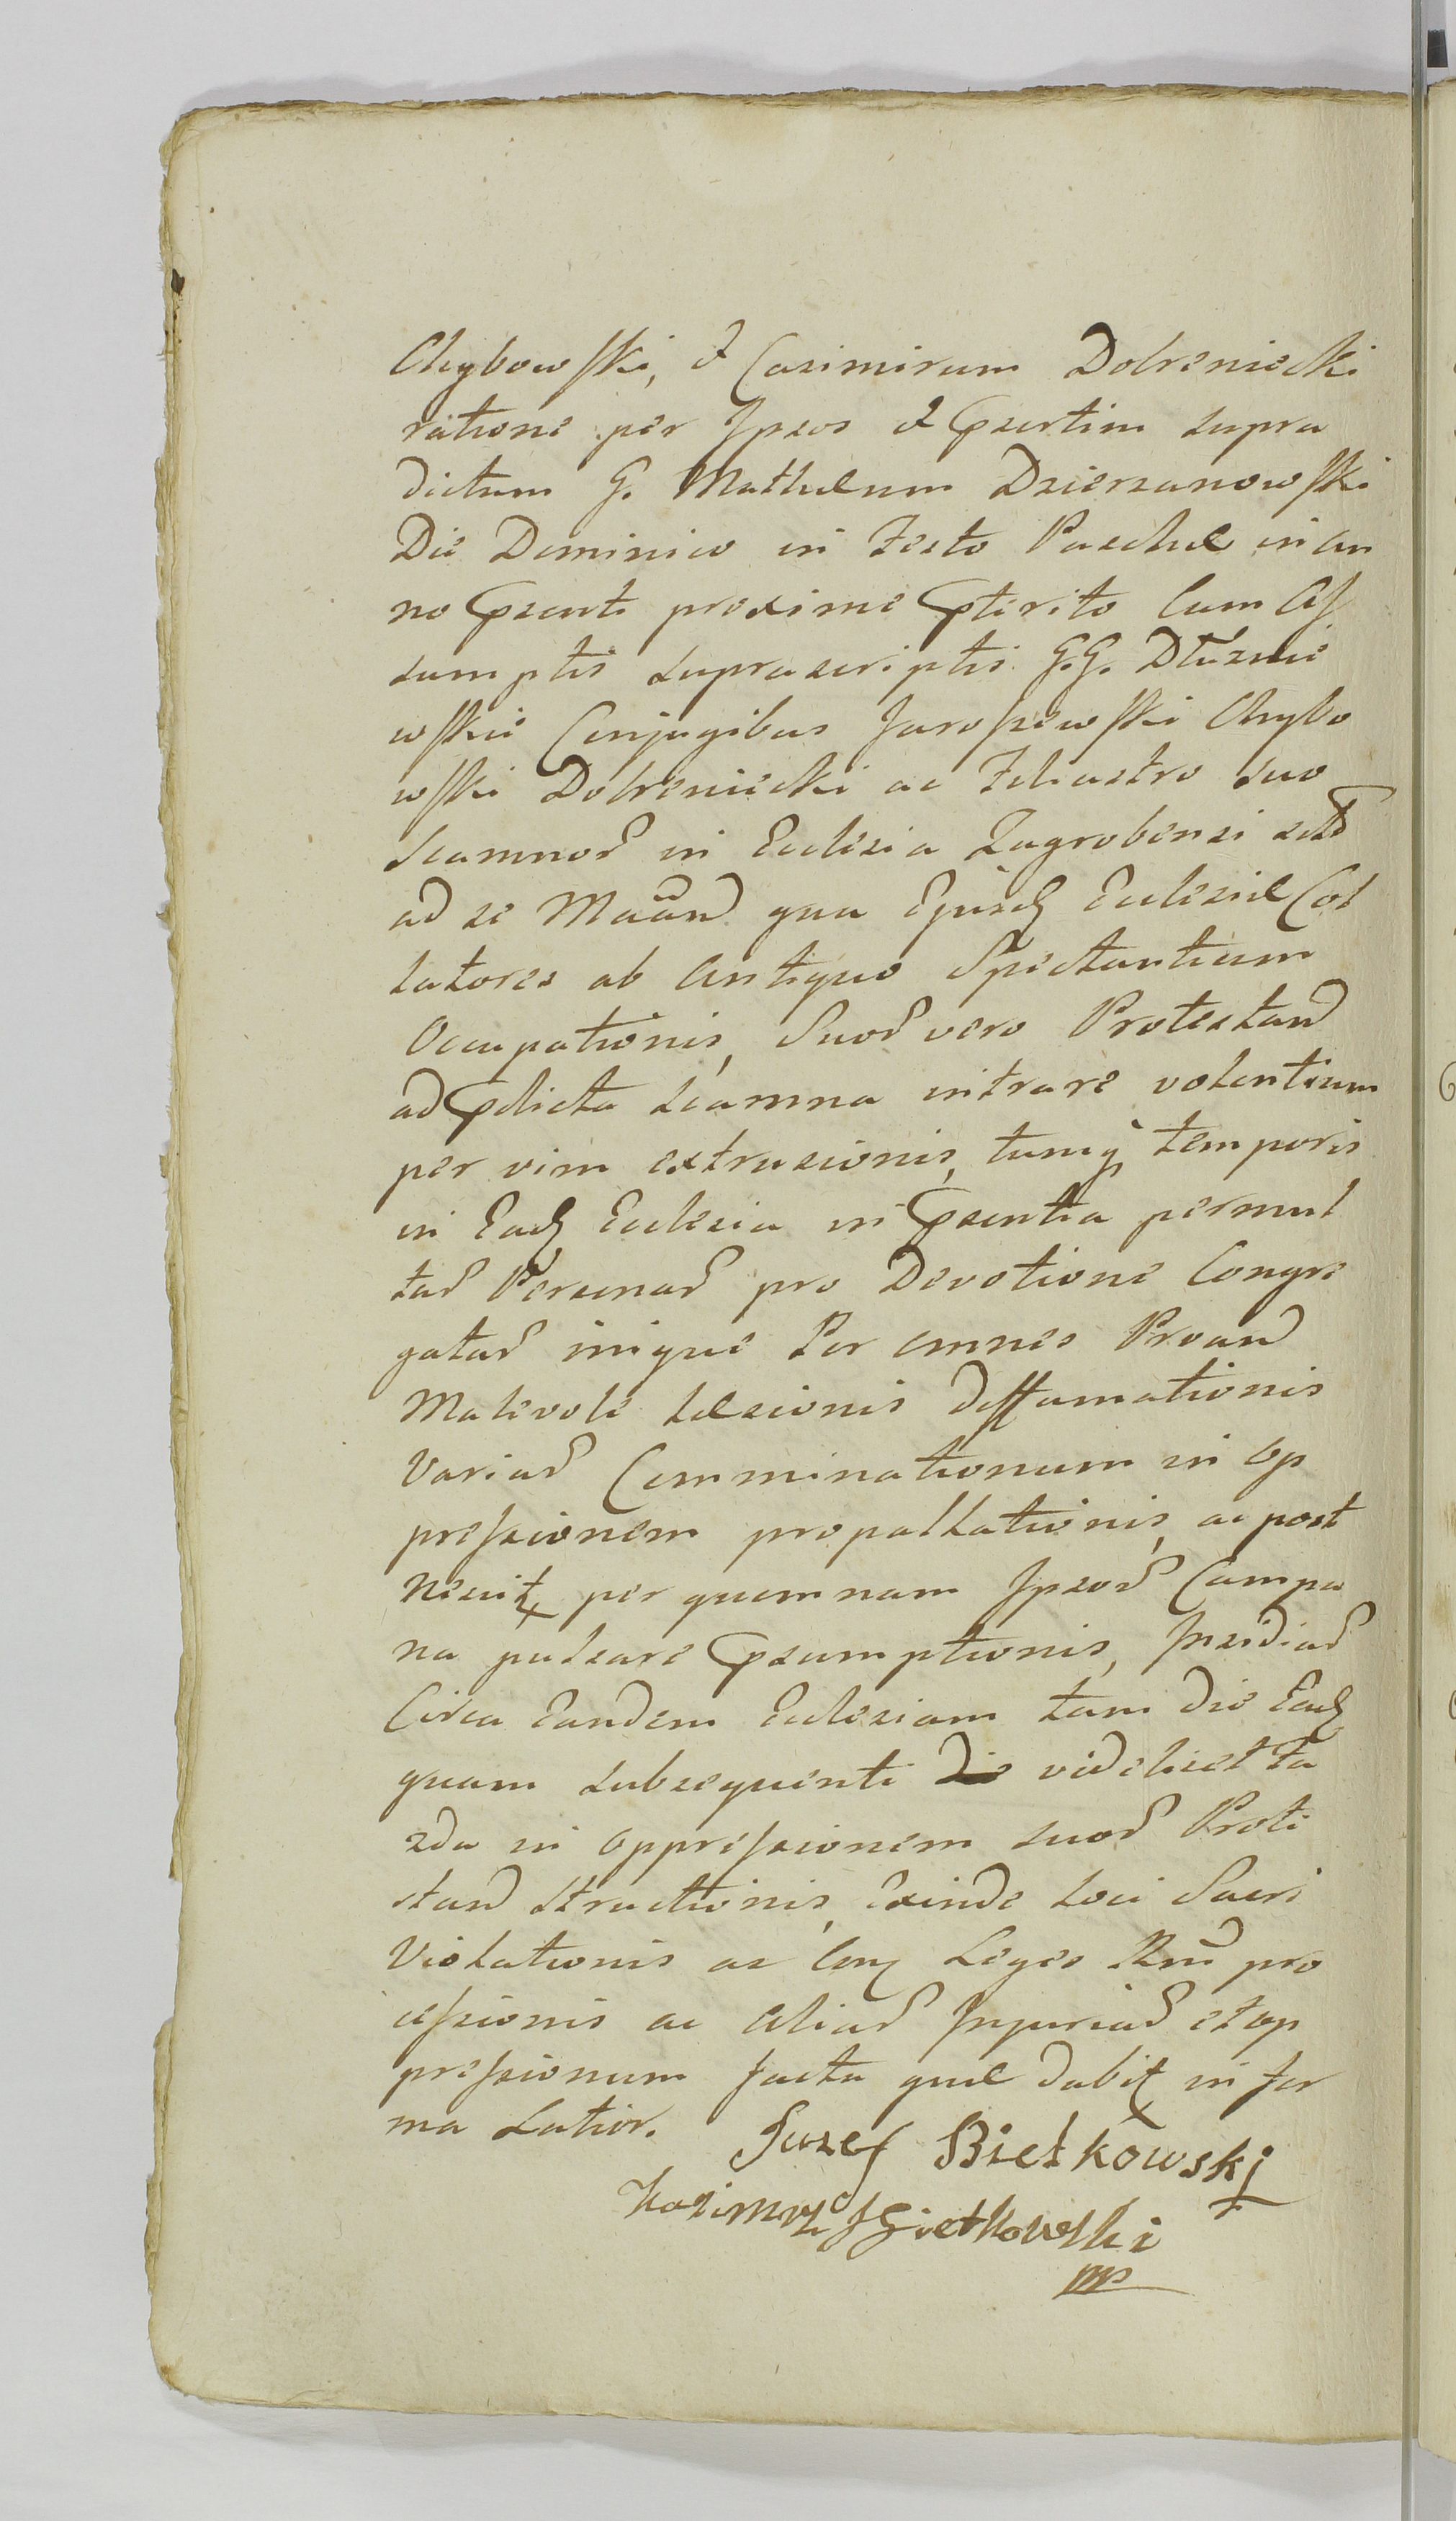 Chybowski, & Casimirum Dobreniecki
ratione per Ipsos & Psertim supra
dictum G. Mathæum Dzierzanowski
Die Dominico in Festo Paschæ in An
no Psenti proxime Pterito Cum As
sumptis suprascriptis G.G. Dłuznie
wskie Conjugibus Jaroszewski Chybo
wski Dobreniecki ac Filiastro suo
Scamnor in Ecclesia Zagrobensi
ad se Mãnd qua Ejusd Ecclesiæ Col
latores ab Antiquo Spectantium
Occupationis, Suor vero Protestand
ad Pdicta scamna intrare volentium
per vim extrusionis, tumq temporis
in Ead Ecclesia in Psentia permul
tar Personar pro Devotione Congre
gatar inique Per omnes Proand
Malevole læsionis deffamationis
Variar Comminationum in op
pressionem propallationis, ac post
Nescit per quemnam Ipsor Campa
na pulsare Psumptionis, Insidiar
Circa Eandem Ecclesiam tam die Ead
quam subsequenti die videlicet 2a
2da in oppressionem suor Prote
stand structionis, Exinde loci Sacri
Violationis ac Con Leges Rni pro
cessionis ac Aliar Injuriar et op
pressionum facta quæ dabit in for
ma Latior.
Juzef Bietkowski
Kazimirz Bietkowski
mp